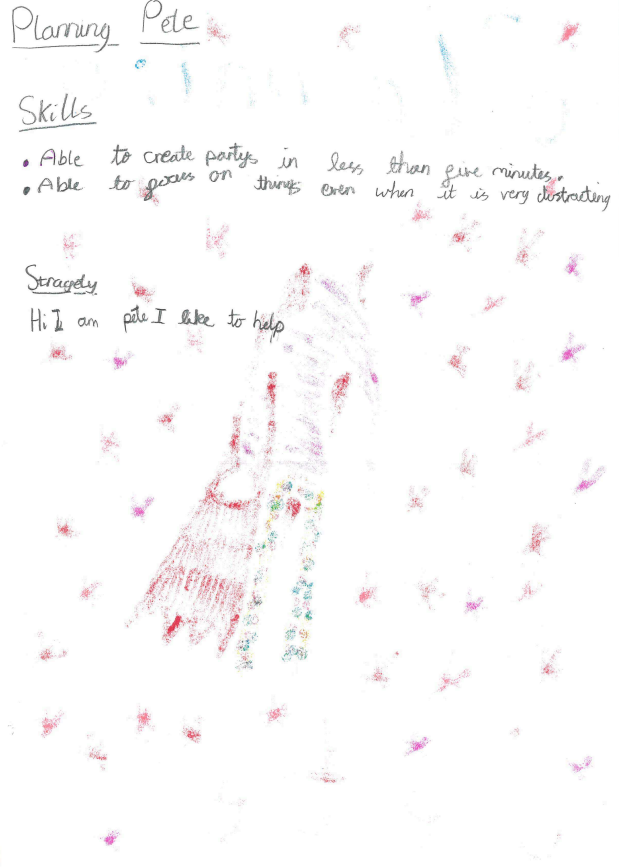 Planning Pete
Skills
• Able to create partys in less than five minutes.
• Able to focus on things even when it is very distracting
Stragely
Hi I am pete I like to help